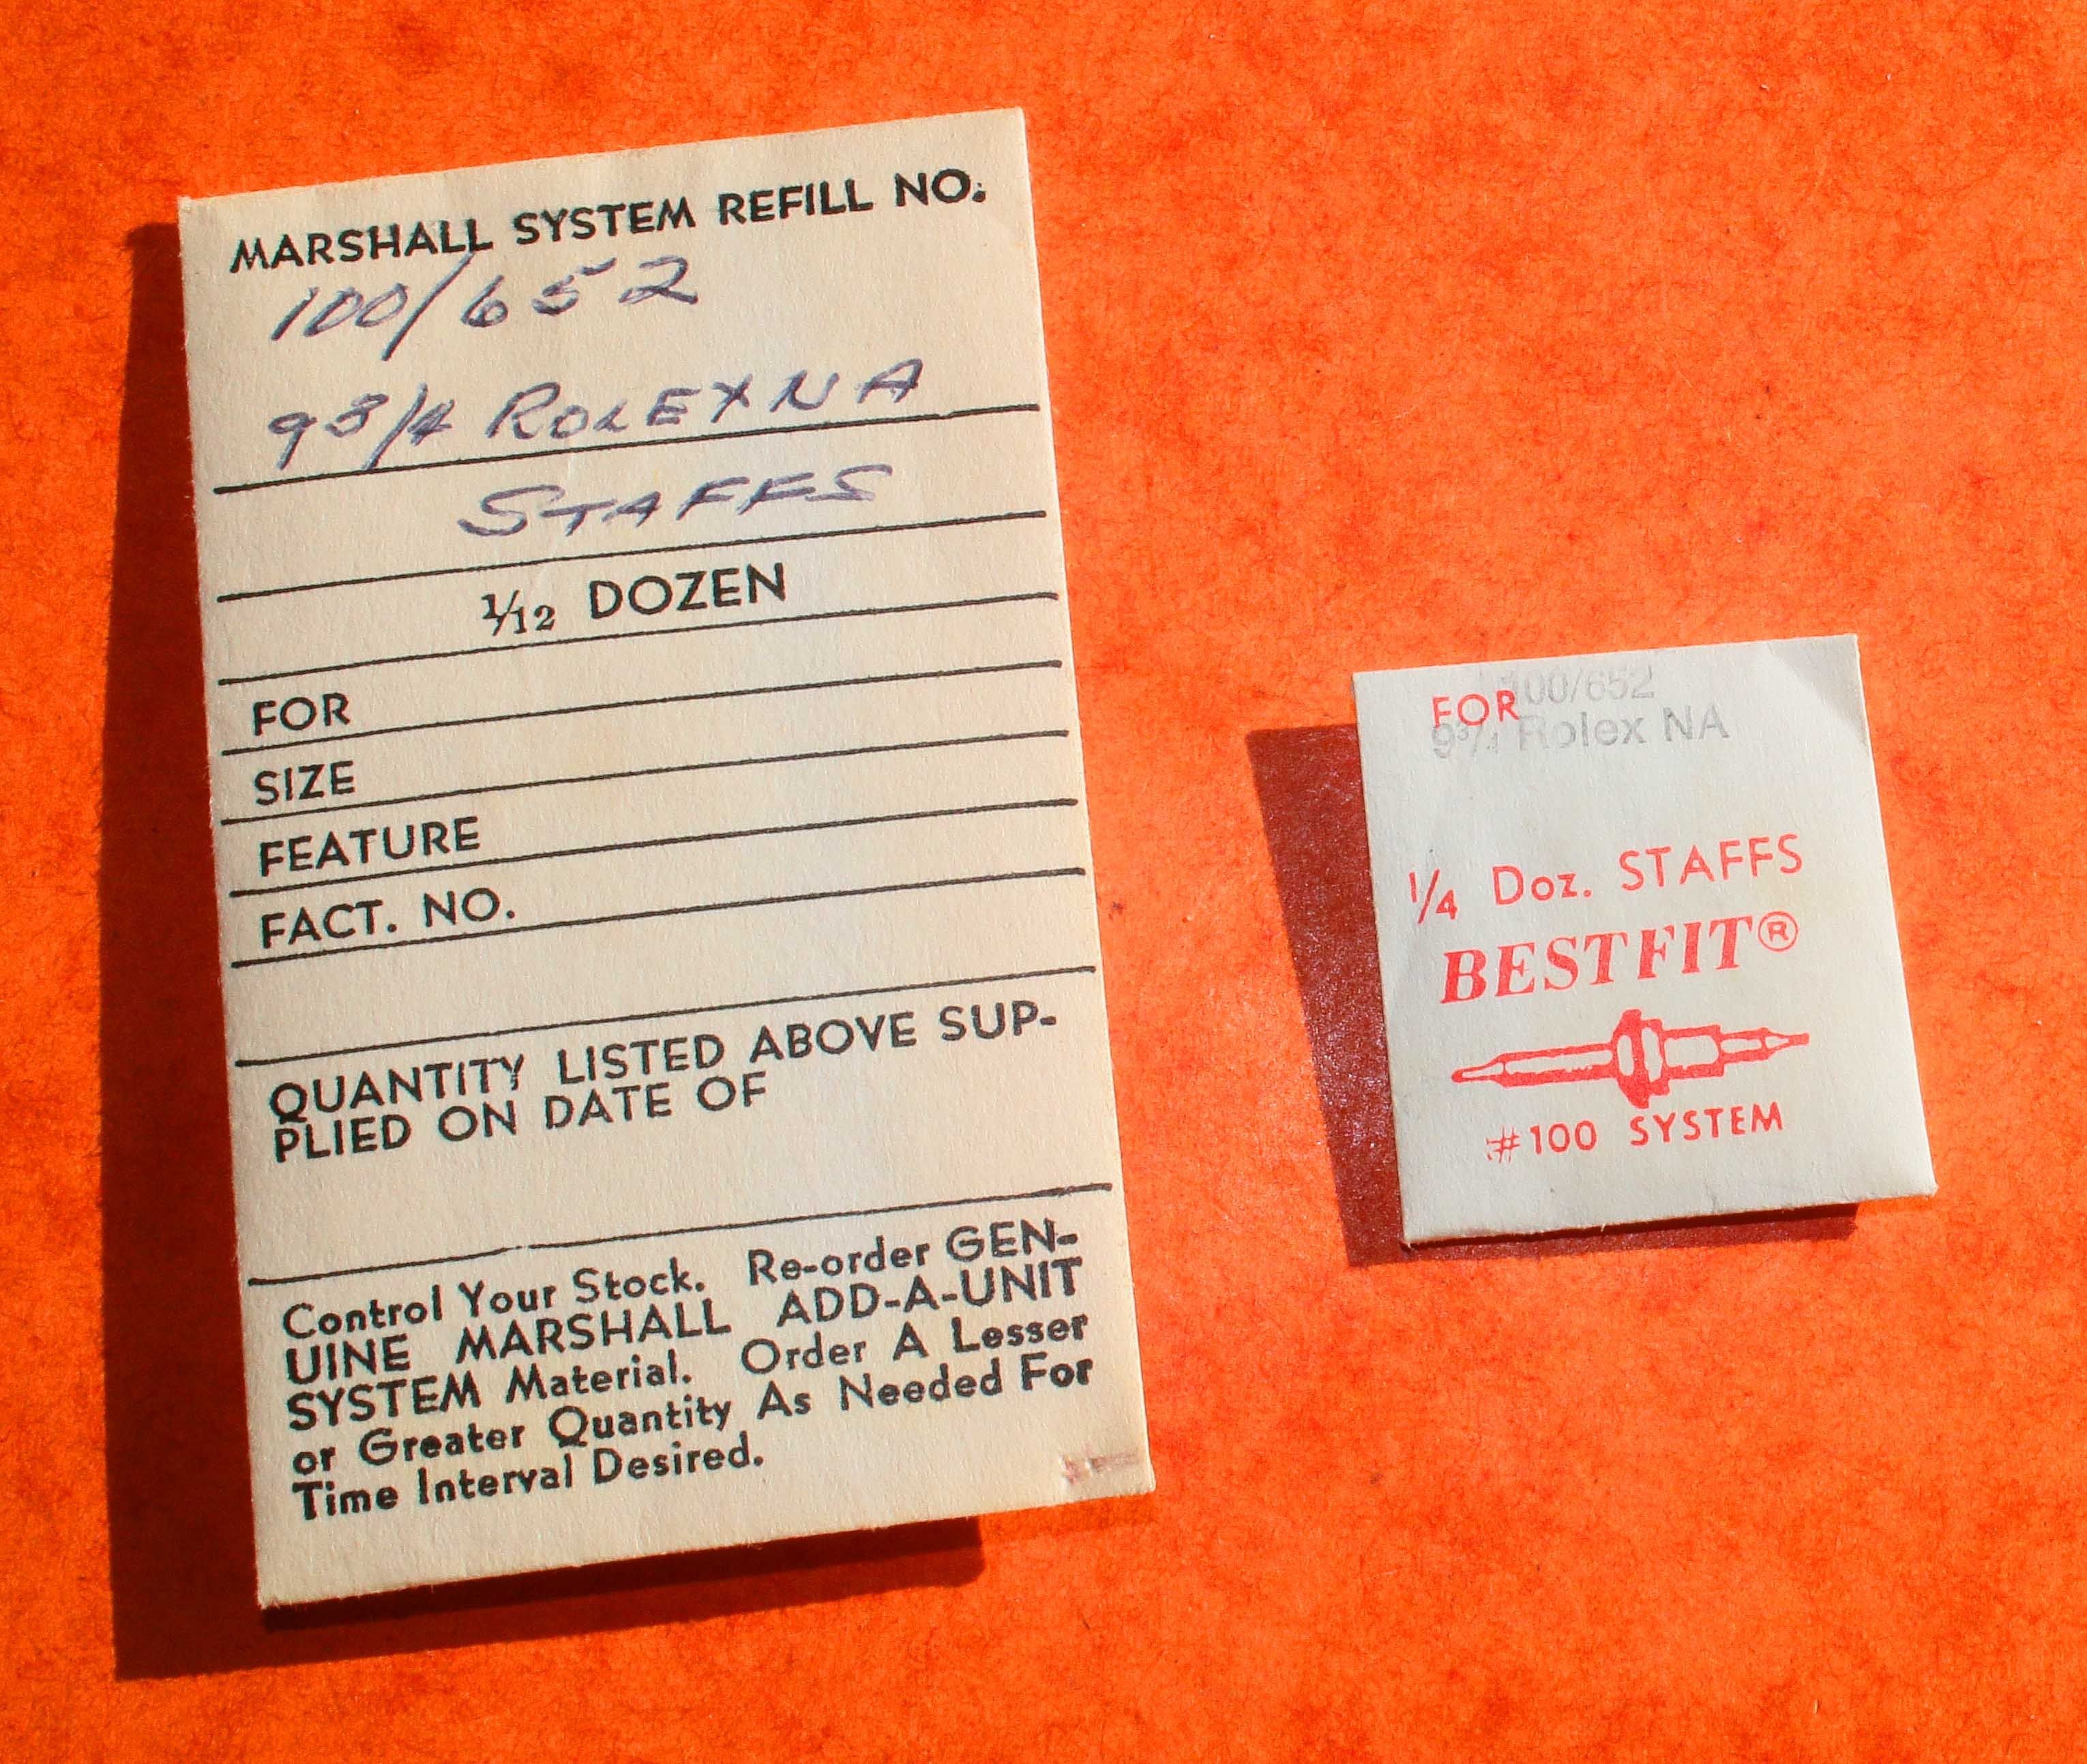 MARSHALL SYSTEM REFILL NO.
100/652
9 3/4 ROLEX NA
STAFFS
1/12 DOZEN
FOR
SIZE
FEATURE
FACT. NO.
QUANTITY LISTED ABOVE SUP-
PLIED ON DATE OF
Control Your Stock. Re-order GEN-
UINE MARSHALL ADD-A-UNIT
SYSTEM Material. Order A Lesser
or Greater Quantity As Needed For
Time Interval Desired.
100/652
FOR
9 3/4 Rolex NA
1/4 Doz. STAFFS
BESTFIT®
#100 SYSTEM